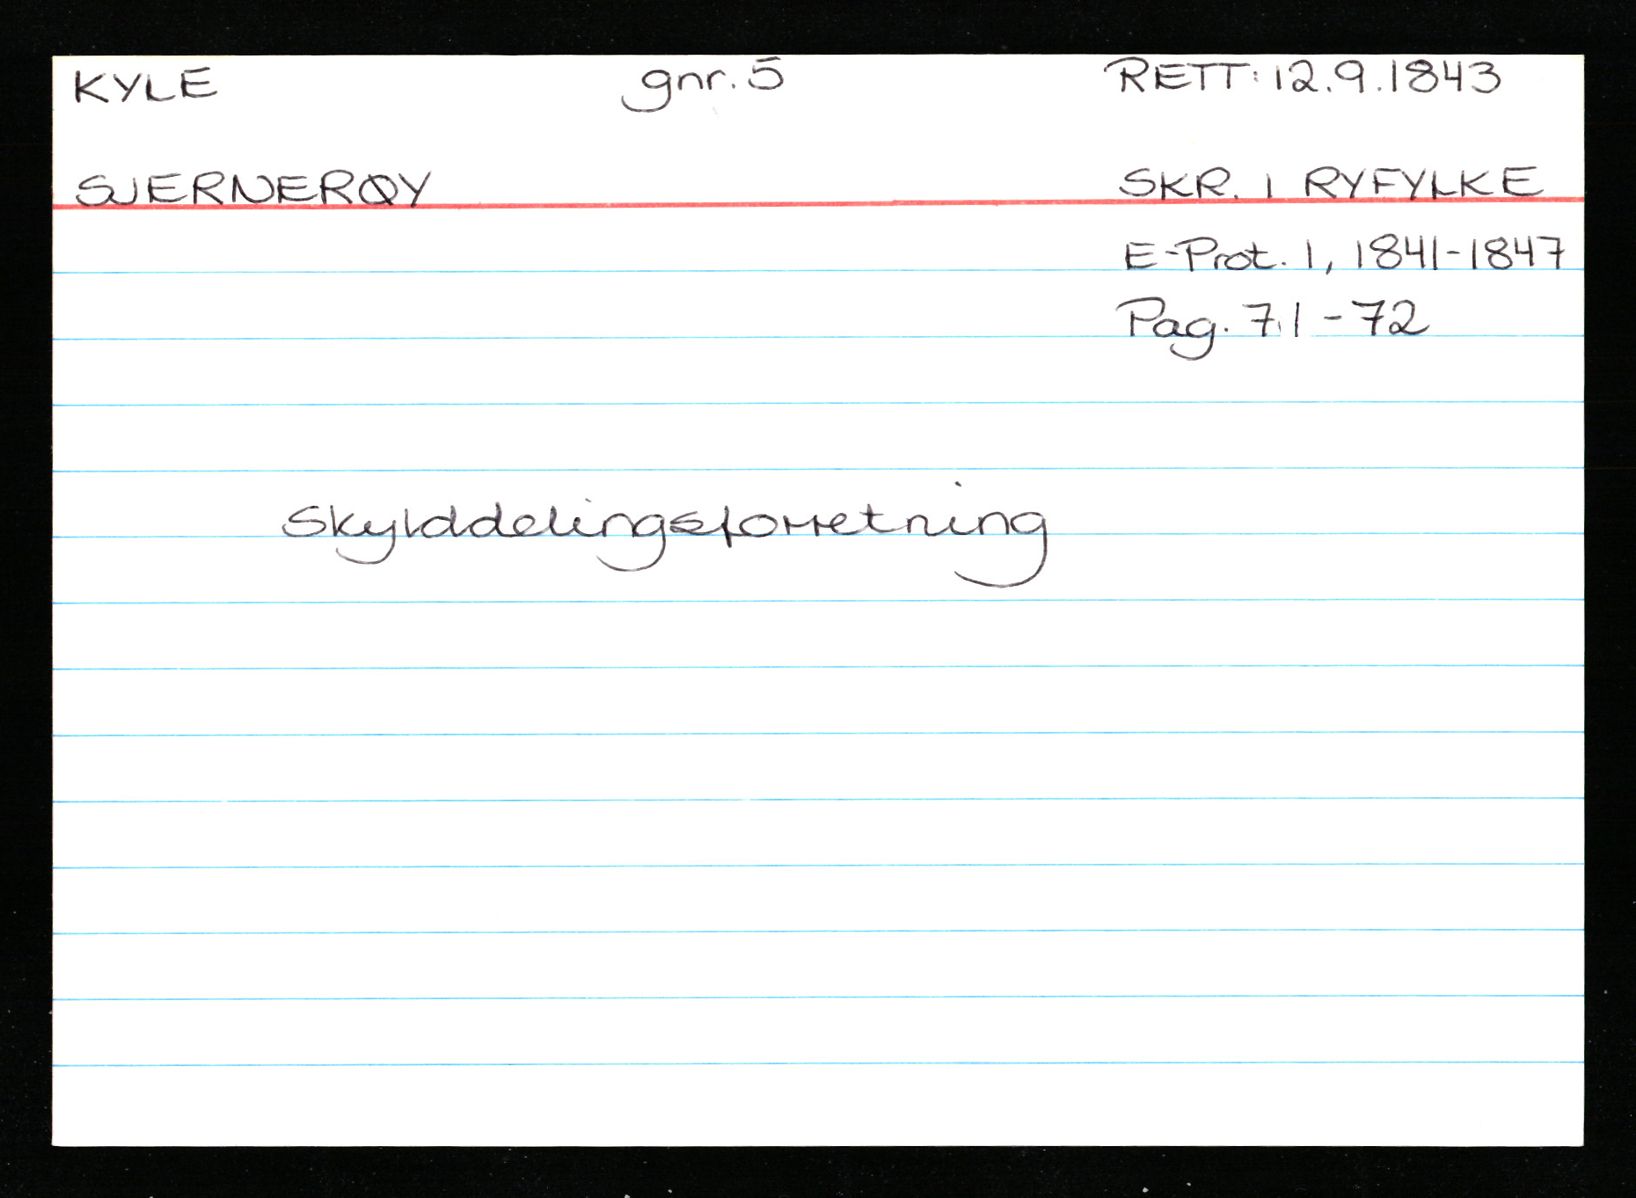 KYLE gnr. 5 RETT: 12.9.1843
SJERNERØY SKR. I RYFYLKE
E-Prot. 1, 1841-1847
Pag. 71-72
Skylddelingsforretning